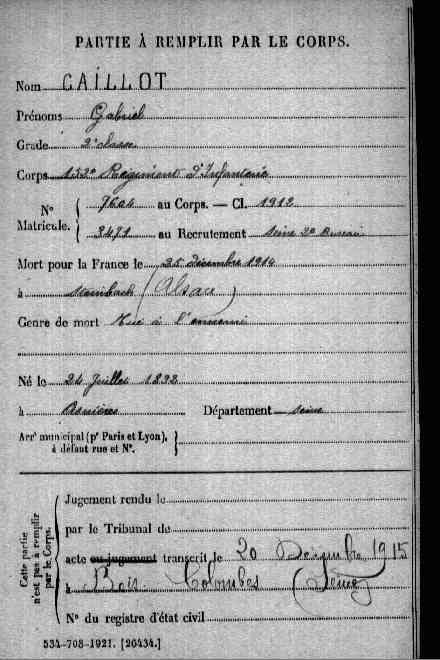 PARTIE À REMPLIR PAR LE CORPS.
Nom CAILLOT
Prénoms Gabriel
Grade 2e classe
Corps 152e Régiment d'Infanterie
N° Matricule. { 7604 au Corps. — Cl. 1912
3471 au Recrutement Seine 2e Bureau
Mort pour la France le 25 Décembre 1914
à Steinbach (Alsace)
Genre de mort Tué à l'ennemi
Né le 24 Juillet 1892
à Asnières Département Seine
Arrt municipal (pr Paris et Lyon), à défaut rue et N°. }
Cette partie n'est pas à remplir par le Corps.
Jugement rendu le
par le Tribunal de
acte ou jugement transcrit le 20 Décembre 1915
à Bois Colombes (Seine)
N° du registre d'état civil
534-708-1921. [26434.]